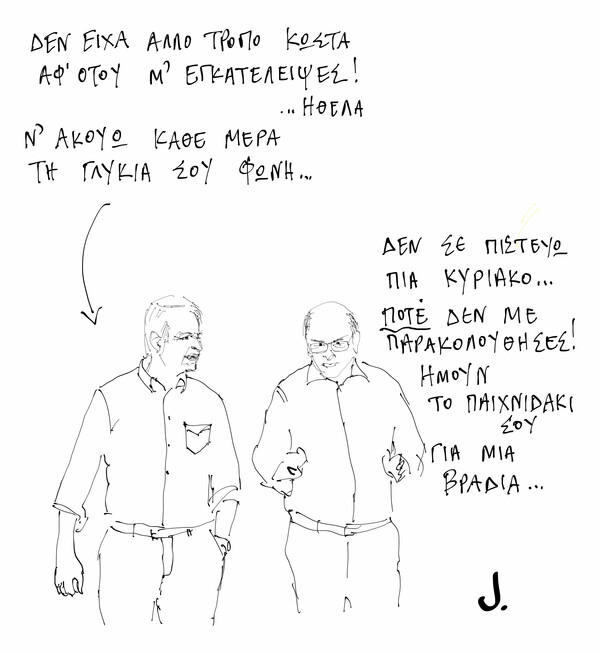 ΔΕΝ ΕΙΧΑ ΑΛΛΟ ΤΡΟΠΟ ΚΩΣΤΑ
ΑΦ' ΟΤΟΥ Μ' ΕΓΚΑΤΕΛΕΙΨΕΣ!
...ΗΘΕΛΑ
Ν' ΑΚΟΥΩ ΚΑΘΕ ΜΕΡΑ
ΤΗ ΓΛΥΚΙΑ ΣΟΥ ΦΩΝΗ...
ΔΕΝ ΣΕ ΠΙΣΤΕΥΩ
ΠΙΑ ΚΥΡΙΑΚΟ...
ΠΟΤΕ ΔΕΝ ΜΕ
ΠΑΡΑΚΟΛΟΥΘΗΣΕΣ!
ΗΜΟΥΝ
ΤΟ ΠΑΙΧΝΙΔΑΚΙ
ΣΟΥ
ΓΙΑ ΜΙΑ
ΒΡΑΔΙΑ...
J.